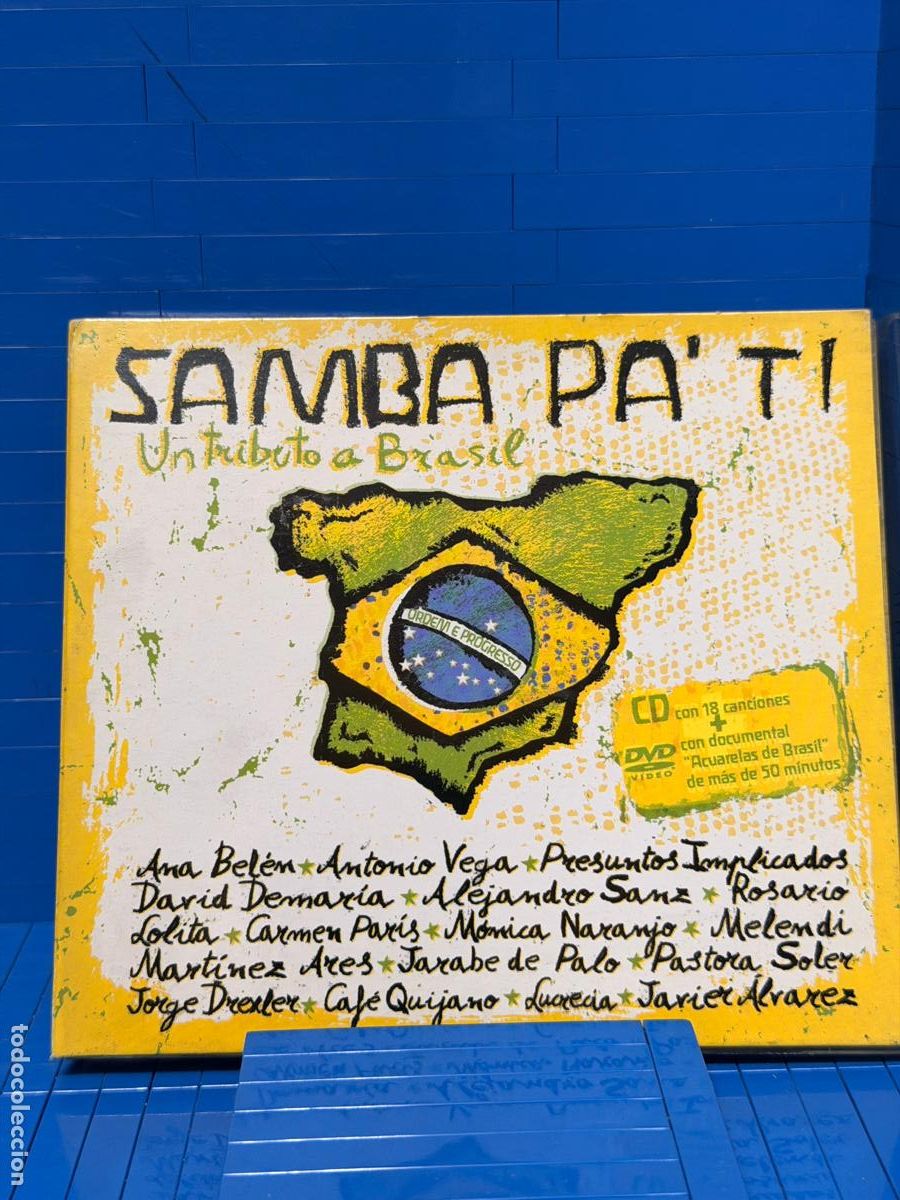 SAMBA PA' TI
Un tributo a Brasil
ORDEM E PROGRESSO
CD con 18 canciones
+
DVD VIDEO con documental
"Acuarelas de Brasil"
de más de 50 minutos
Ana Belén ★ Antonio Vega ★ Presuntos Implicados
David Demaría ★ Alejandro Sanz ★ Rosario
Lolita ★ Carmen París ★ Mónica Naranjo ★ Melendi
Martínez Ares ★ Jarabe de Palo ★ Pastora Soler
Jorge Drexler ★ Café Quijano ★ Lucrecia ★ Javier Álvarez
todocoleccion